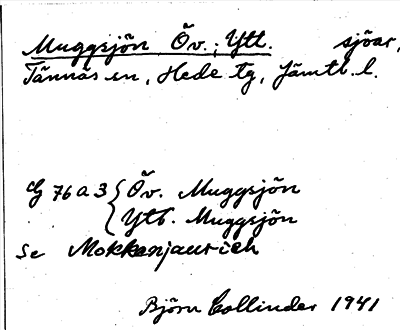 Muggsjön Öv.; Ytt. sjöar,
Tännäs sn, Hede tg, Jämtl. l.
G 76 a 3 { Öv. Muggsjön
Ytt. Muggsjön
se Mokkanjaurieh
Björn Collinder 1941